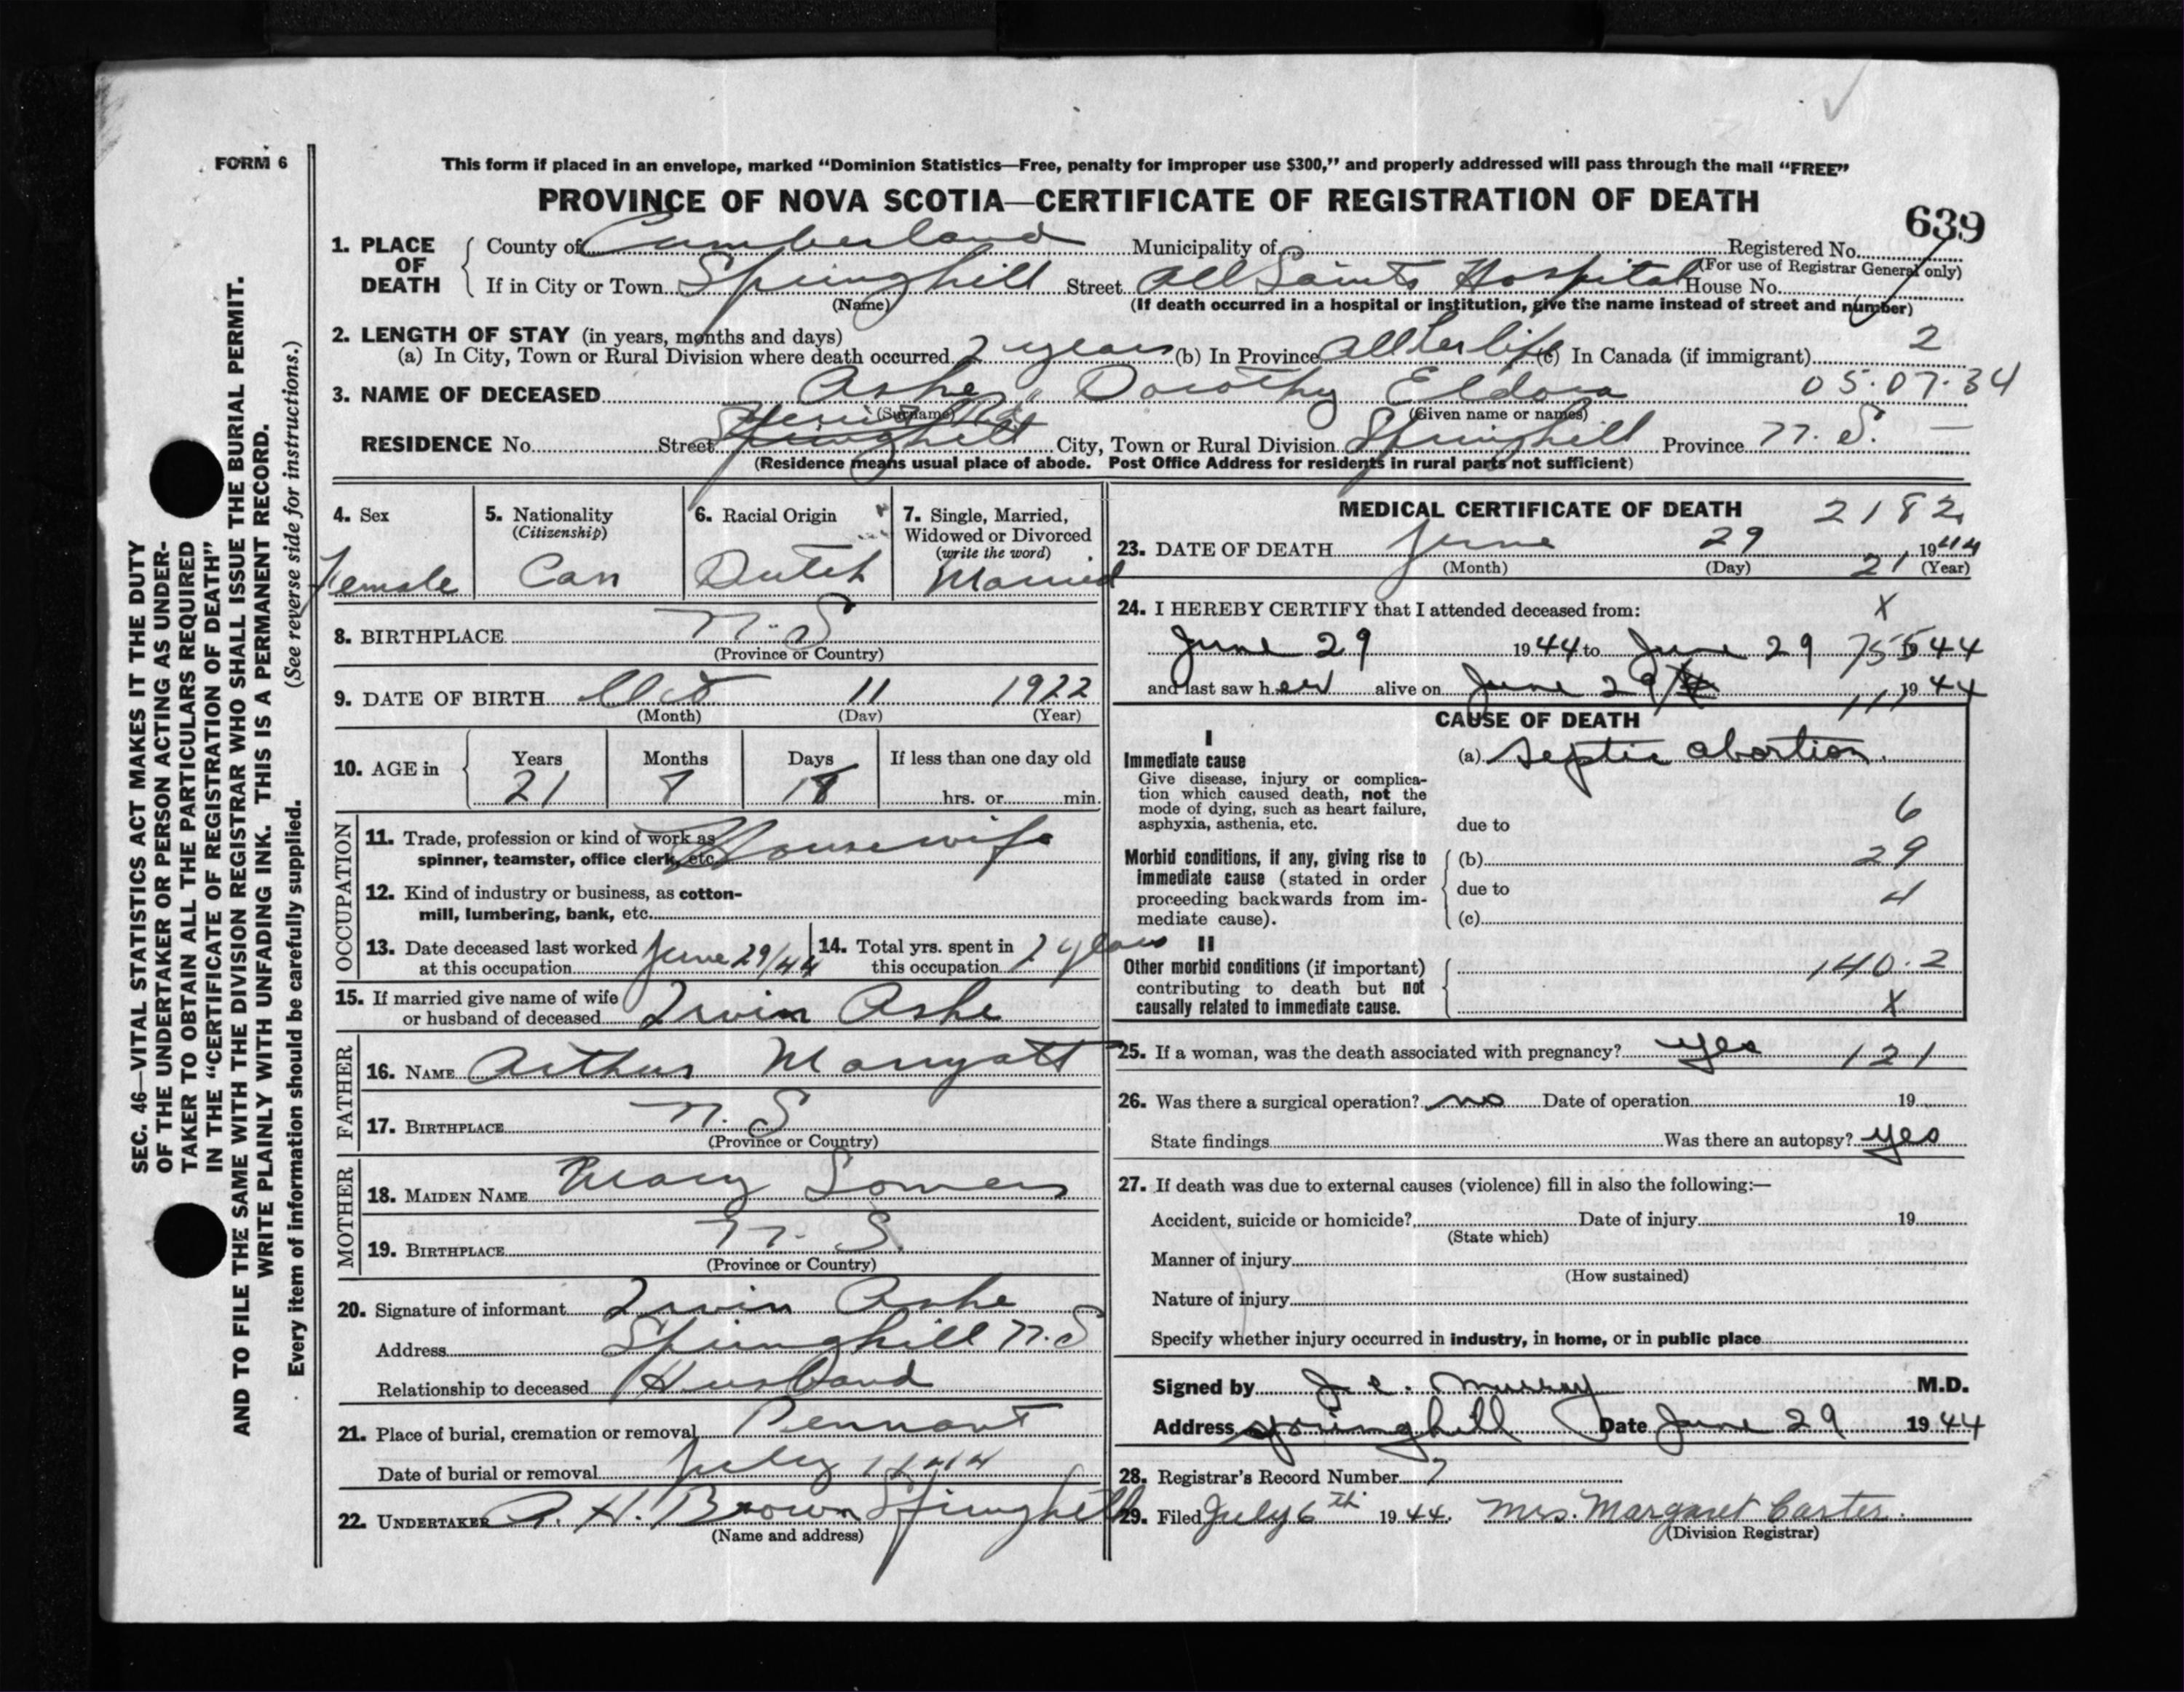 FORM 6
This form if placed in an envelope, marked "Dominion Statistics—Free, penalty for improper use $300," and properly addressed will pass through the mail "FREE"
PROVINCE OF NOVA SCOTIA—CERTIFICATE OF REGISTRATION OF DEATH
639
1. PLACE OF DEATH County of Cumberland Municipality of Registered No.
(For use of Registrar General only)
If in City or Town Springhill Street All Saints Hospital House No.
(Name) (If death occurred in a hospital or institution, give the name instead of street and number)
2. LENGTH OF STAY (in years, months and days) 2
(a) In City, Town or Rural Division where death occurred 2 years (b) In Province All her life (c) In Canada (if immigrant)
3. NAME OF DECEASED Ashe, Dorothy Eldora 05.07.34
(Surname) (Given name or names)
RESIDENCE No. Street Springhill City, Town or Rural Division Springhill Province N. S. —
(Residence means usual place of abode. Post Office Address for residents in rural parts not sufficient)
4. Sex Female
5. Nationality (Citizenship) Can
6. Racial Origin Dutch
7. Single, Married, Widowed or Divorced (write the word) Married
8. BIRTHPLACE N. S
(Province or Country)
9. DATE OF BIRTH Oct 11 1922
(Month) (Day) (Year)
10. AGE in Years 21 Months 8 Days 18 If less than one day old hrs. or min.
OCCUPATION
11. Trade, profession or kind of work as spinner, teamster, office clerk, etc. Housewife
12. Kind of industry or business, as cotton-mill, lumbering, bank, etc.
13. Date deceased last worked at this occupation June 29/44
14. Total yrs. spent in this occupation 2 years
15. If married give name of wife or husband of deceased Irvin Ashe
FATHER
16. NAME Arthur Marryatt
17. BIRTHPLACE N. S
(Province or Country)
MOTHER
18. MAIDEN NAME Mary Somers
19. BIRTHPLACE N. S.
(Province or Country)
20. Signature of informant Irvin Ashe
Address Springhill N. S
Relationship to deceased Husband
21. Place of burial, cremation or removal Pennant
Date of burial or removal July 1 1944
22. UNDERTAKER A. H. Brown Springhill
(Name and address)
MEDICAL CERTIFICATE OF DEATH 2182
23. DATE OF DEATH June 29 1944
(Month) (Day) 21 (Year)
24. I HEREBY CERTIFY that I attended deceased from: X
June 29 1944 to June 29 755 44
and last saw her alive on June 29 111 1944
CAUSE OF DEATH
I
Immediate cause (a) Septic abortion.
Give disease, injury or complication which caused death, not the mode of dying, such as heart failure, asphyxia, asthenia, etc.
due to 6
Morbid conditions, if any, giving rise to immediate cause (stated in order proceeding backwards from immediate cause).
(b) 29
due to 4
(c)
II
Other morbid conditions (if important) contributing to death but not causally related to immediate cause.
140.2
X
25. If a woman, was the death associated with pregnancy? yes 121
26. Was there a surgical operation? no Date of operation 19
State findings Was there an autopsy? yes
27. If death was due to external causes (violence) fill in also the following:—
Accident, suicide or homicide? Date of injury 19
(State which)
Manner of injury
(How sustained)
Nature of injury
Specify whether injury occurred in industry, in home, or in public place
Signed by J. C. Murray M.D.
Address Springhill Date June 29 1944
28. Registrar's Record Number 7
29. Filed July 6th 1944. Mrs. Margaret Carter.
(Division Registrar)
SEC. 46—VITAL STATISTICS ACT MAKES IT THE DUTY
OF THE UNDERTAKER OR PERSON ACTING AS UNDER-
TAKER TO OBTAIN ALL THE PARTICULARS REQUIRED
IN THE "CERTIFICATE OF REGISTRATION OF DEATH"
AND TO FILE THE SAME WITH THE DIVISION REGISTRAR WHO SHALL ISSUE THE BURIAL PERMIT.
WRITE PLAINLY WITH UNFADING INK. THIS IS A PERMANENT RECORD.
Every item of information should be carefully supplied. (See reverse side for instructions.)